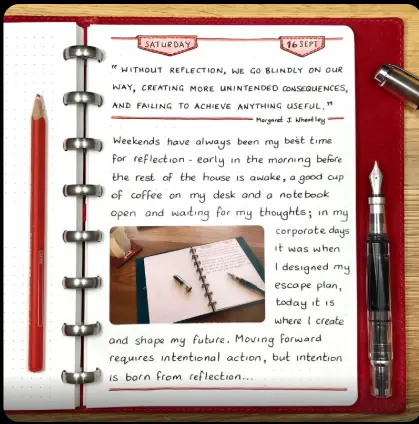 SATURDAY
16 SEPT
"WITHOUT REFLECTION, WE GO BLINDLY ON OUR
WAY, CREATING MORE UNINTENDED CONSEQUENCES,
AND FAILING TO ACHIEVE ANYTHING USEFUL."
Margaret J. Wheatley
Weekends have always been my best time
for reflection - early in the morning before
the rest of the house is awake, a good cup
of coffee on my desk and a notebook
open and waiting for my thoughts; in my
corporate days
it was when
I designed my
escape plan,
today it is
where I create
and shape my future. Moving forward
requires intentional action, but intention
is born from reflection...